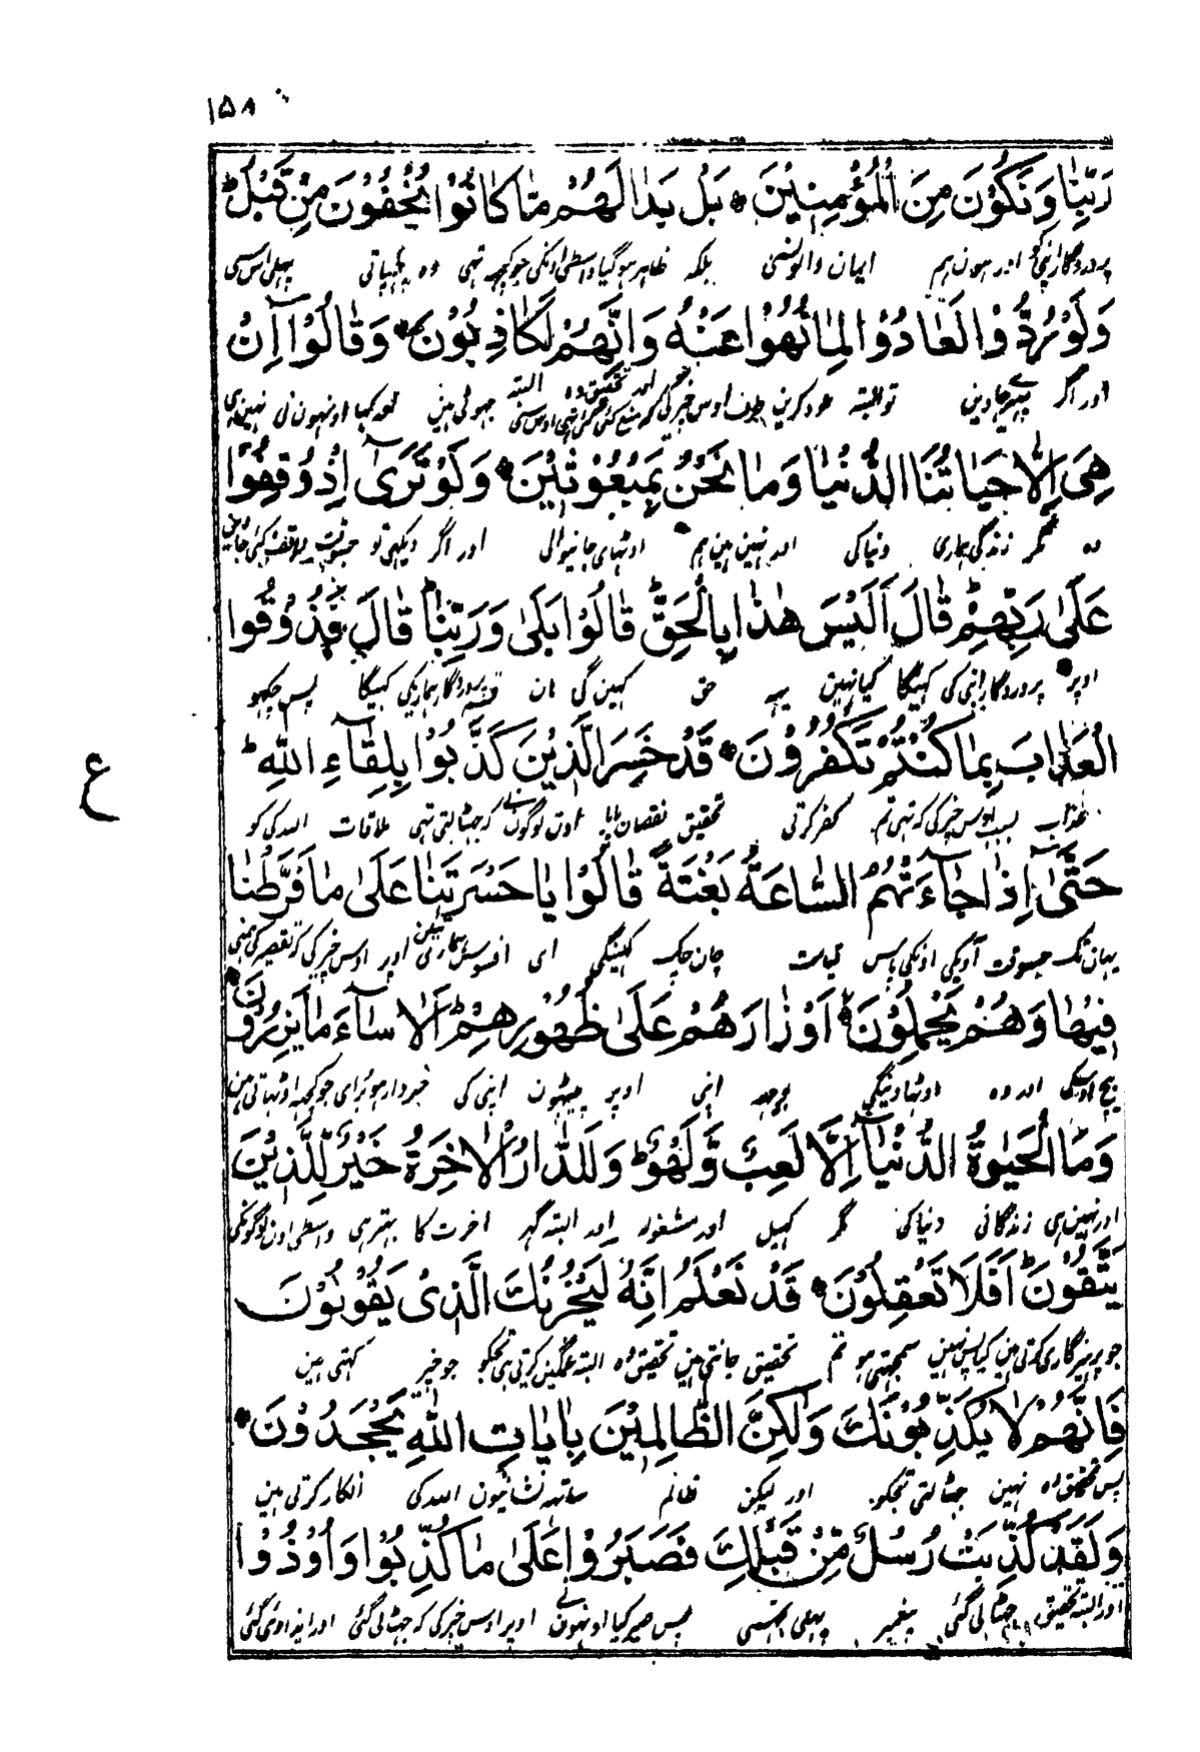 ۱۵۸
رَبِّنَا وَنَكُوْنَ مِنَ الْمُؤْمِنِيْنَ بَلْ بَدَا لَهُمْ مَّا كَانُوْا يُخْفُوْنَ مِنْ قَبْلُ ؕ
پروردگار اپنی کی اور ہون ہم ایمان والونسی بلکہ ظاہر ہوگیا واسطی اونکی جو کچھہ تہی وہ چہپاتی پہلی اس سی
وَلَوْ رُدُّوْا لَعَادُوْا لِمَا نُهُوْا عَنْهُ وَاِنَّهُمْ لَكَاذِبُوْنَ وَقَالُوْٓا اِنْ
اور اگر پہیرے جاوین تو البتہ عود کرین طرف اوس چیز کی کہ منع کئی گئی تہی اوس سی اور تحقیق وہ البتہ جہوٹی ہین اور کہا اونہون نی نہین ہی
هِيَ اِلَّا حَيَاتُنَا الدُّنْيَا وَمَا نَحْنُ بِمَبْعُوْثِيْنَ وَلَوْ تَرٰىٓ اِذْ وُقِفُوْا
وہ مگر زندگی ہماری دنیا کی اور نہین ہین ہم اوٹہای جانیوالی اور اگر دیکہی تو جسوقت
عَلٰى رَبِّهِمْ ؕ قَالَ اَلَيْسَ هٰذَا بِالْحَقِّ ؕ قَالُوْا بَلٰى وَرَبِّنَا ؕ قَالَ فَذُوْقُوا
اوپر پروردگار اپنی کی کہیگا کیا نہین یہہ حق کہین گی ہان قسم پروردگار ہماریکی کہیگا پس چکہو
الْعَذَابَ بِمَا كُنْتُمْ تَكْفُرُوْنَ قَدْ خَسِرَ الَّذِيْنَ كَذَّبُوْا بِلِقَآءِ اللهِ ؕ
ع
عذاب بسبب اوس چیز کی کہ تہی تم کفر کرتی تحقیق نقصان پایا اون لوگون نے کہ جہٹالتی تہی ملاقات اللہ کی کو
حَتّٰىٓ اِذَا جَآءَتْهُمُ السَّاعَةُ بَغْتَةً قَالُوْا يَا حَسْرَتَنَا عَلٰى مَا فَرَّطْنَا
یہان تک جسوقت آویگی اونکی پاس قیامت اچان چک کہینگی ای افسوس اوپر اوس چیز کی کہ تقصیر کی ہمنی
فِيْهَا وَهُمْ يَحْمِلُوْنَ اَوْزَارَهُمْ عَلٰى ظُهُوْرِهِمْ ؕ اَلَا سَآءَ مَا يَزِرُوْنَ
بیچ اوسکی اور وہ اوٹہاوینگی بوجہہ اپنی اوپر پیٹہون اپنی کی خبردار ہو برای جو کچہہ اوٹہاتی ہین
وَمَا الْحَيٰوةُ الدُّنْيَآ اِلَّا لَعِبٌ وَّلَهْوٌ ؕ وَلَلدَّارُ الْاٰخِرَةُ خَيْرٌ لِّلَّذِيْنَ
اور نہین ہی زندگانی دنیا کی مگر کہیل اور مشغولہ اور البتہ گہر اخرت کا بہتر ہی واسطی اون لوگونکی
يَتَّقُوْنَ ؕ اَفَلَا تَعْقِلُوْنَ قَدْ نَعْلَمُ اِنَّهُ لَيَحْزُنُكَ الَّذِىْ يَقُوْلُوْنَ
جو پرہیزگاری کرتی ہین کیا پس نہین سمجہتی ہو تم تحقیق جانتی ہین تحقیق وہ البتہ غمگین کرتی ہی تجکو جو چیز کہتی ہین
فَاِنَّهُمْ لَا يُكَذِّبُوْنَكَ وَلٰكِنَّ الظَّالِمِيْنَ بِاٰيَاتِ اللهِ يَجْحَدُوْنَ
پس تحقیق وہ نہین جہٹالتی تجکو اور لیکن ظالم ساتہہ نشانیون اللہ کی انکار کرتی ہین
وَلَقَدْ كُذِّبَتْ رُسُلٌ مِّنْ قَبْلِكَ فَصَبَرُوْا عَلٰى مَا كُذِّبُوْا وَاُوْذُوْا
اور البتہ تحقیق جہٹالی گئی پیغمبر پہلی تجسی پس صبر کیا اونہون نے اوپر اوس چیز کی کہ جہٹالی گئی اور ایذا دئی گئی